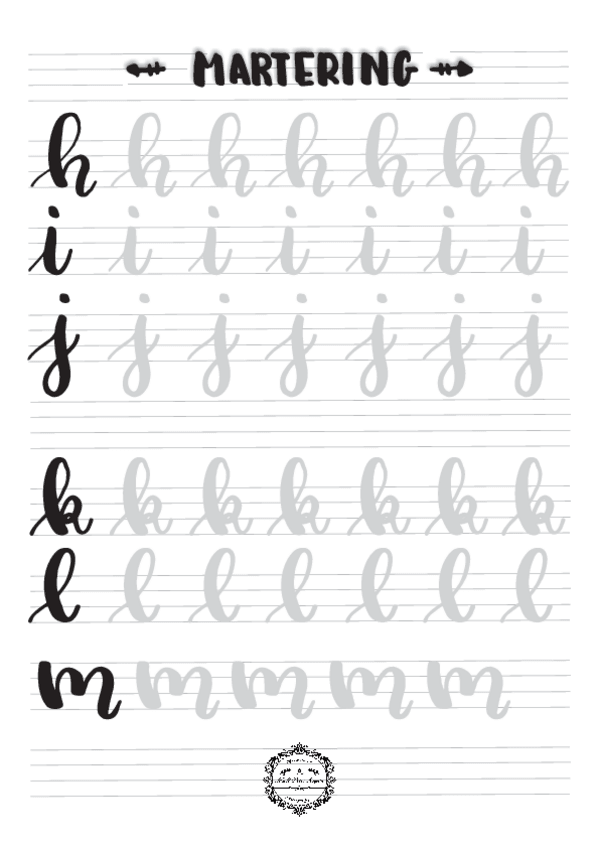 MARTERING
h h h h h h h
i i i i i i i
j j j j j j j
k k k k k k k
l l l l l l l
m m m m m